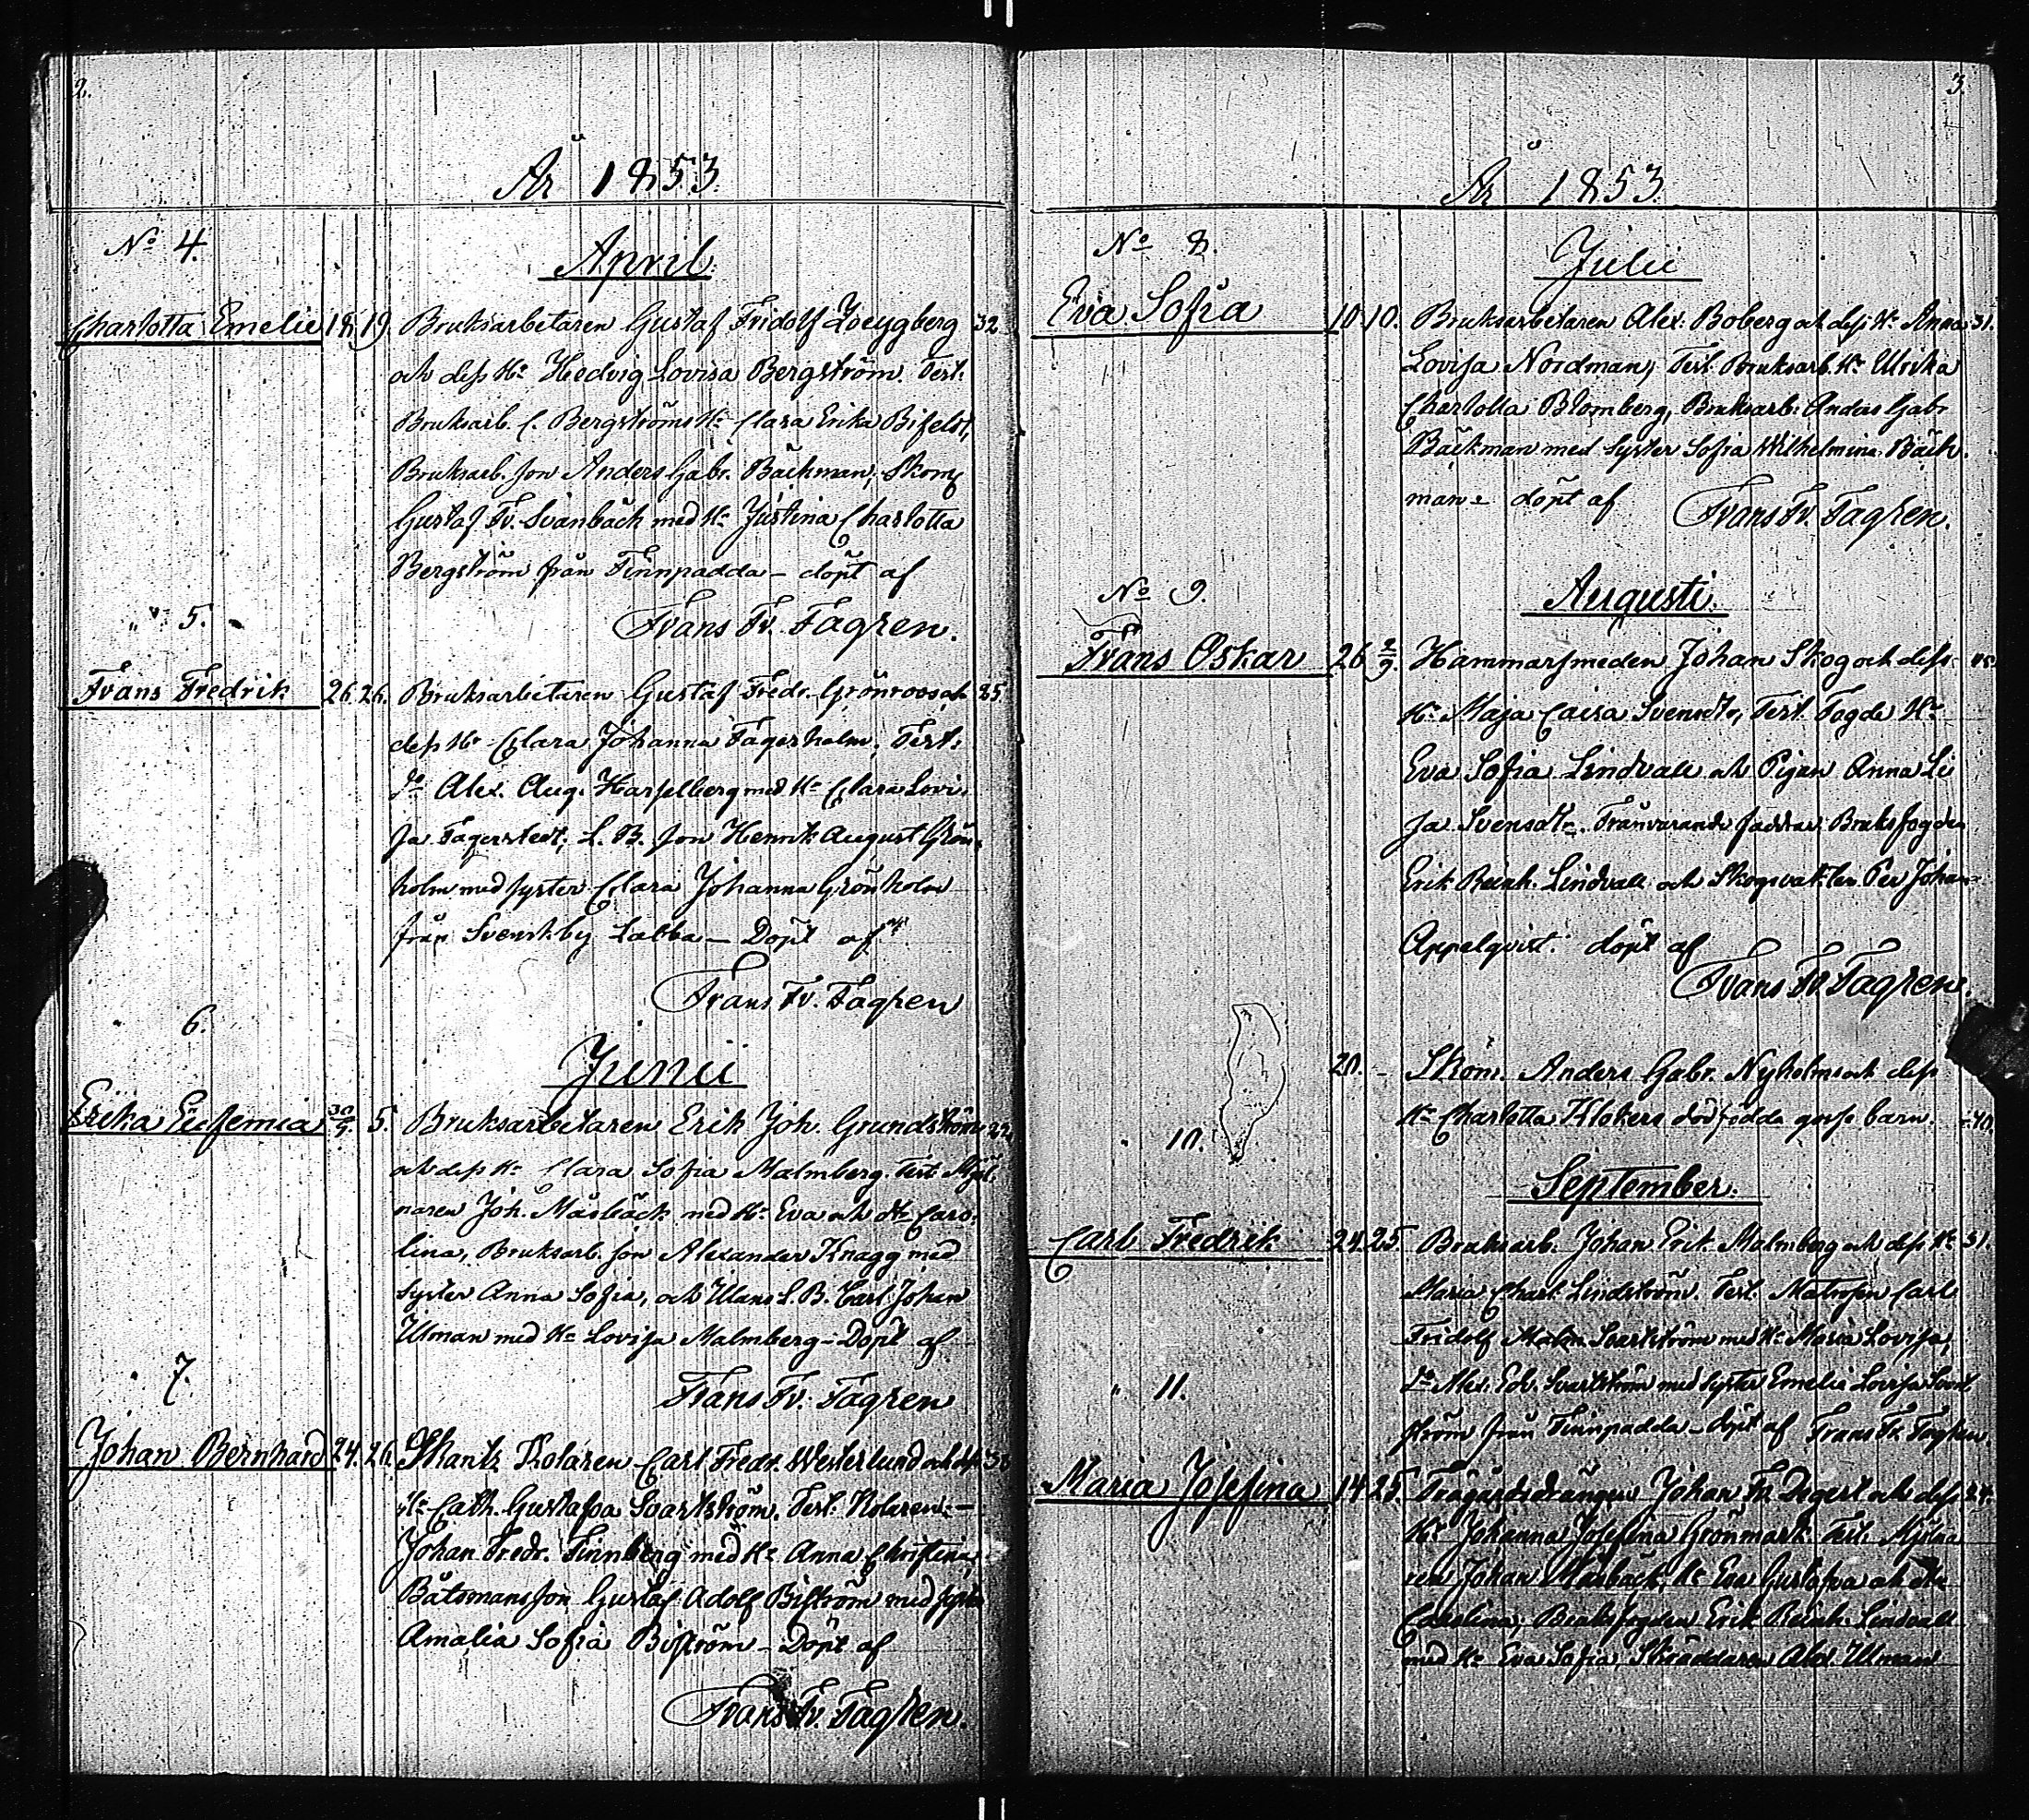 2.
År 1853
No 4.
April
Charlotta Emelie 18. 19. Bruksarbetaren Gustaf Fridolf Zweygberg 32.
och dess Ha Hedvig Lovisa Bergström. Test.
Bruksarb. C. Bergströms Ha Clara Erika Bifelt,
Bruksarb. son Anders Gabr. Bäckman, Skom
Gustaf Fr. Svanbäck med Ha Justina Charlotta
Bergström från Finnpadda - döpt af
Frans Fr. Fagren.
" 5.
Frans Fredrik 26. 26. Bruksarbetaren Gustaf Fredr. Grönroos och 25.
dess Ha Clara Johanna Fagerholm. Test.
do Alex. Aug. Hasselberg med Ha Clara Lovi-
sa Fagerstedt, L. B. son Henrik August Grön-
holm med syster Clara Johanna Grönholm
från Svenskby Labba - Döpt af
Frans Fr. Fagren
" 6.
Junii
Erika Eufemia 30/5. 5. Bruksarbetaren Erik Joh. Grundström 29.
och dess Ha Clara Sofia Malmberg. Test. Mjöl-
naren Joh. Måsbäck med Ha Eva och dtr Caro-
lina, Bruksarb. son Alexander Knagg med
syster Anna Sofia, och L. B. Carl Johan
Ulman med Ha Lovisa Malmberg - Döpt af
Frans Fr. Fagren
" 7.
Johan Bernhard 24. 26. Kolaren Carl Fredr. Westerlund och dess 38
Ha Cath. Gustafva Svartström. Test. Kolaren -
Johan Fredr. Finnberg med Ha Anna Christina,
Båtsmansson Gustaf Adolf Biström med syster
Amalia Sofia Biström - Döpt af
Frans Fr. Fagren.
3.
År 1853.
No 8.
Julii
Eva Sofia 10. 10. Bruksarbetaren Alex. Boberg och dess Ha Anna 31.
Lovisa Nordman, Test. Bruksarb. Ha Ulrika
Charlotta Blomberg, Bruksarb. Anders Gabr
Bäckman med syster Sofia Wilhelmina Bäck-
man - döpt af Frans Fr. Fagren.
No 9.
Augusti.
Frans Oskar 26 2/9. Hammarsmeden Johan Skog och dess
Ha Maja Caisa Svensdtr, Test. Fogde Ha
Eva Sofia Lindvall och Pigan Anna Li
sa Svensdtr. Frånvarande faddrar Bruksfogden
Erik Reinh. Lindvall och Skogsvakter Per Johan
Appelqvist. döpt af
Frans Fr. Fagren.
20. - Skom. Anders Gabr. Nyholms och dess
Ha Charlotta Klokers dödfödda gosse barn. 40.
" 10.
September.
Carl Fredrik 24. 25. Bruksarb. Johan Erik Malmberg och dess Ha 31.
Maria Charl. Lindström. Test. Matrosen Carl
Fridolf Svartström med Ha Maria Lovisa,
do Alex. Ed. Svartström med syster Emelie Lovisa Svart
ström från Finnpadda - döpt af Frans Fr. Fagren
" 11.
Maria Josefina 14 25. Trägårdsdrängen Johan Fr. Degert och dess 24.
Ha Johanna Josefina Grönmark. Test. Mjölna
ren Johan Måsbäck, Ha Eva Gustafva och dtr
Carolina, Bruksfogden Erik Reinh. Lindvall
med Ha Eva Sofia, Skräddaren Alex. Ulman